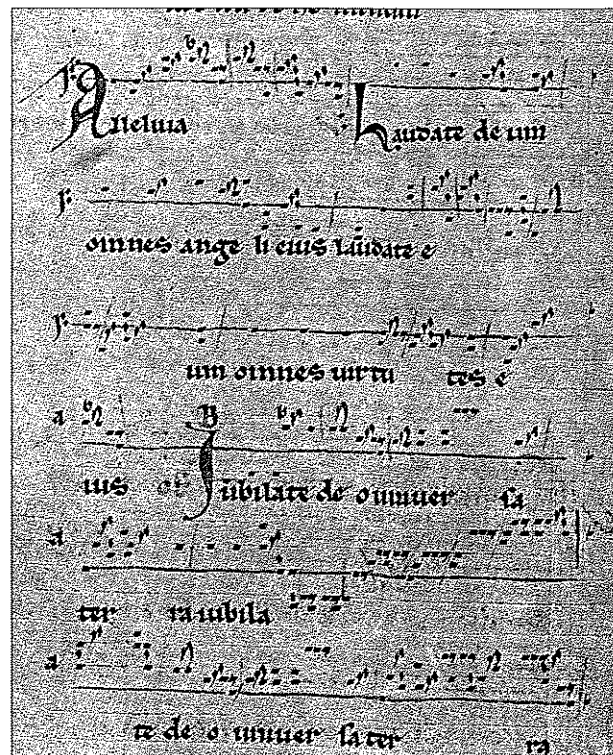 Alleluia Laudate de um
omnes ange li eius laudate e
um omnes uirtu tes e
ius Iubilate de o uniuer sa
ter ra iubila
te de o uniuer sa ter ra